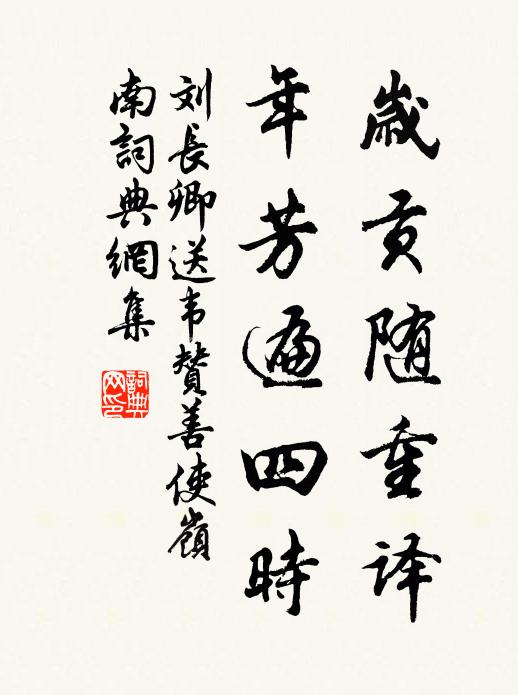 歲贡随重译
年芳遍四時
刘長卿送韦贊善使嶺
南詞典網集
詞典
网印